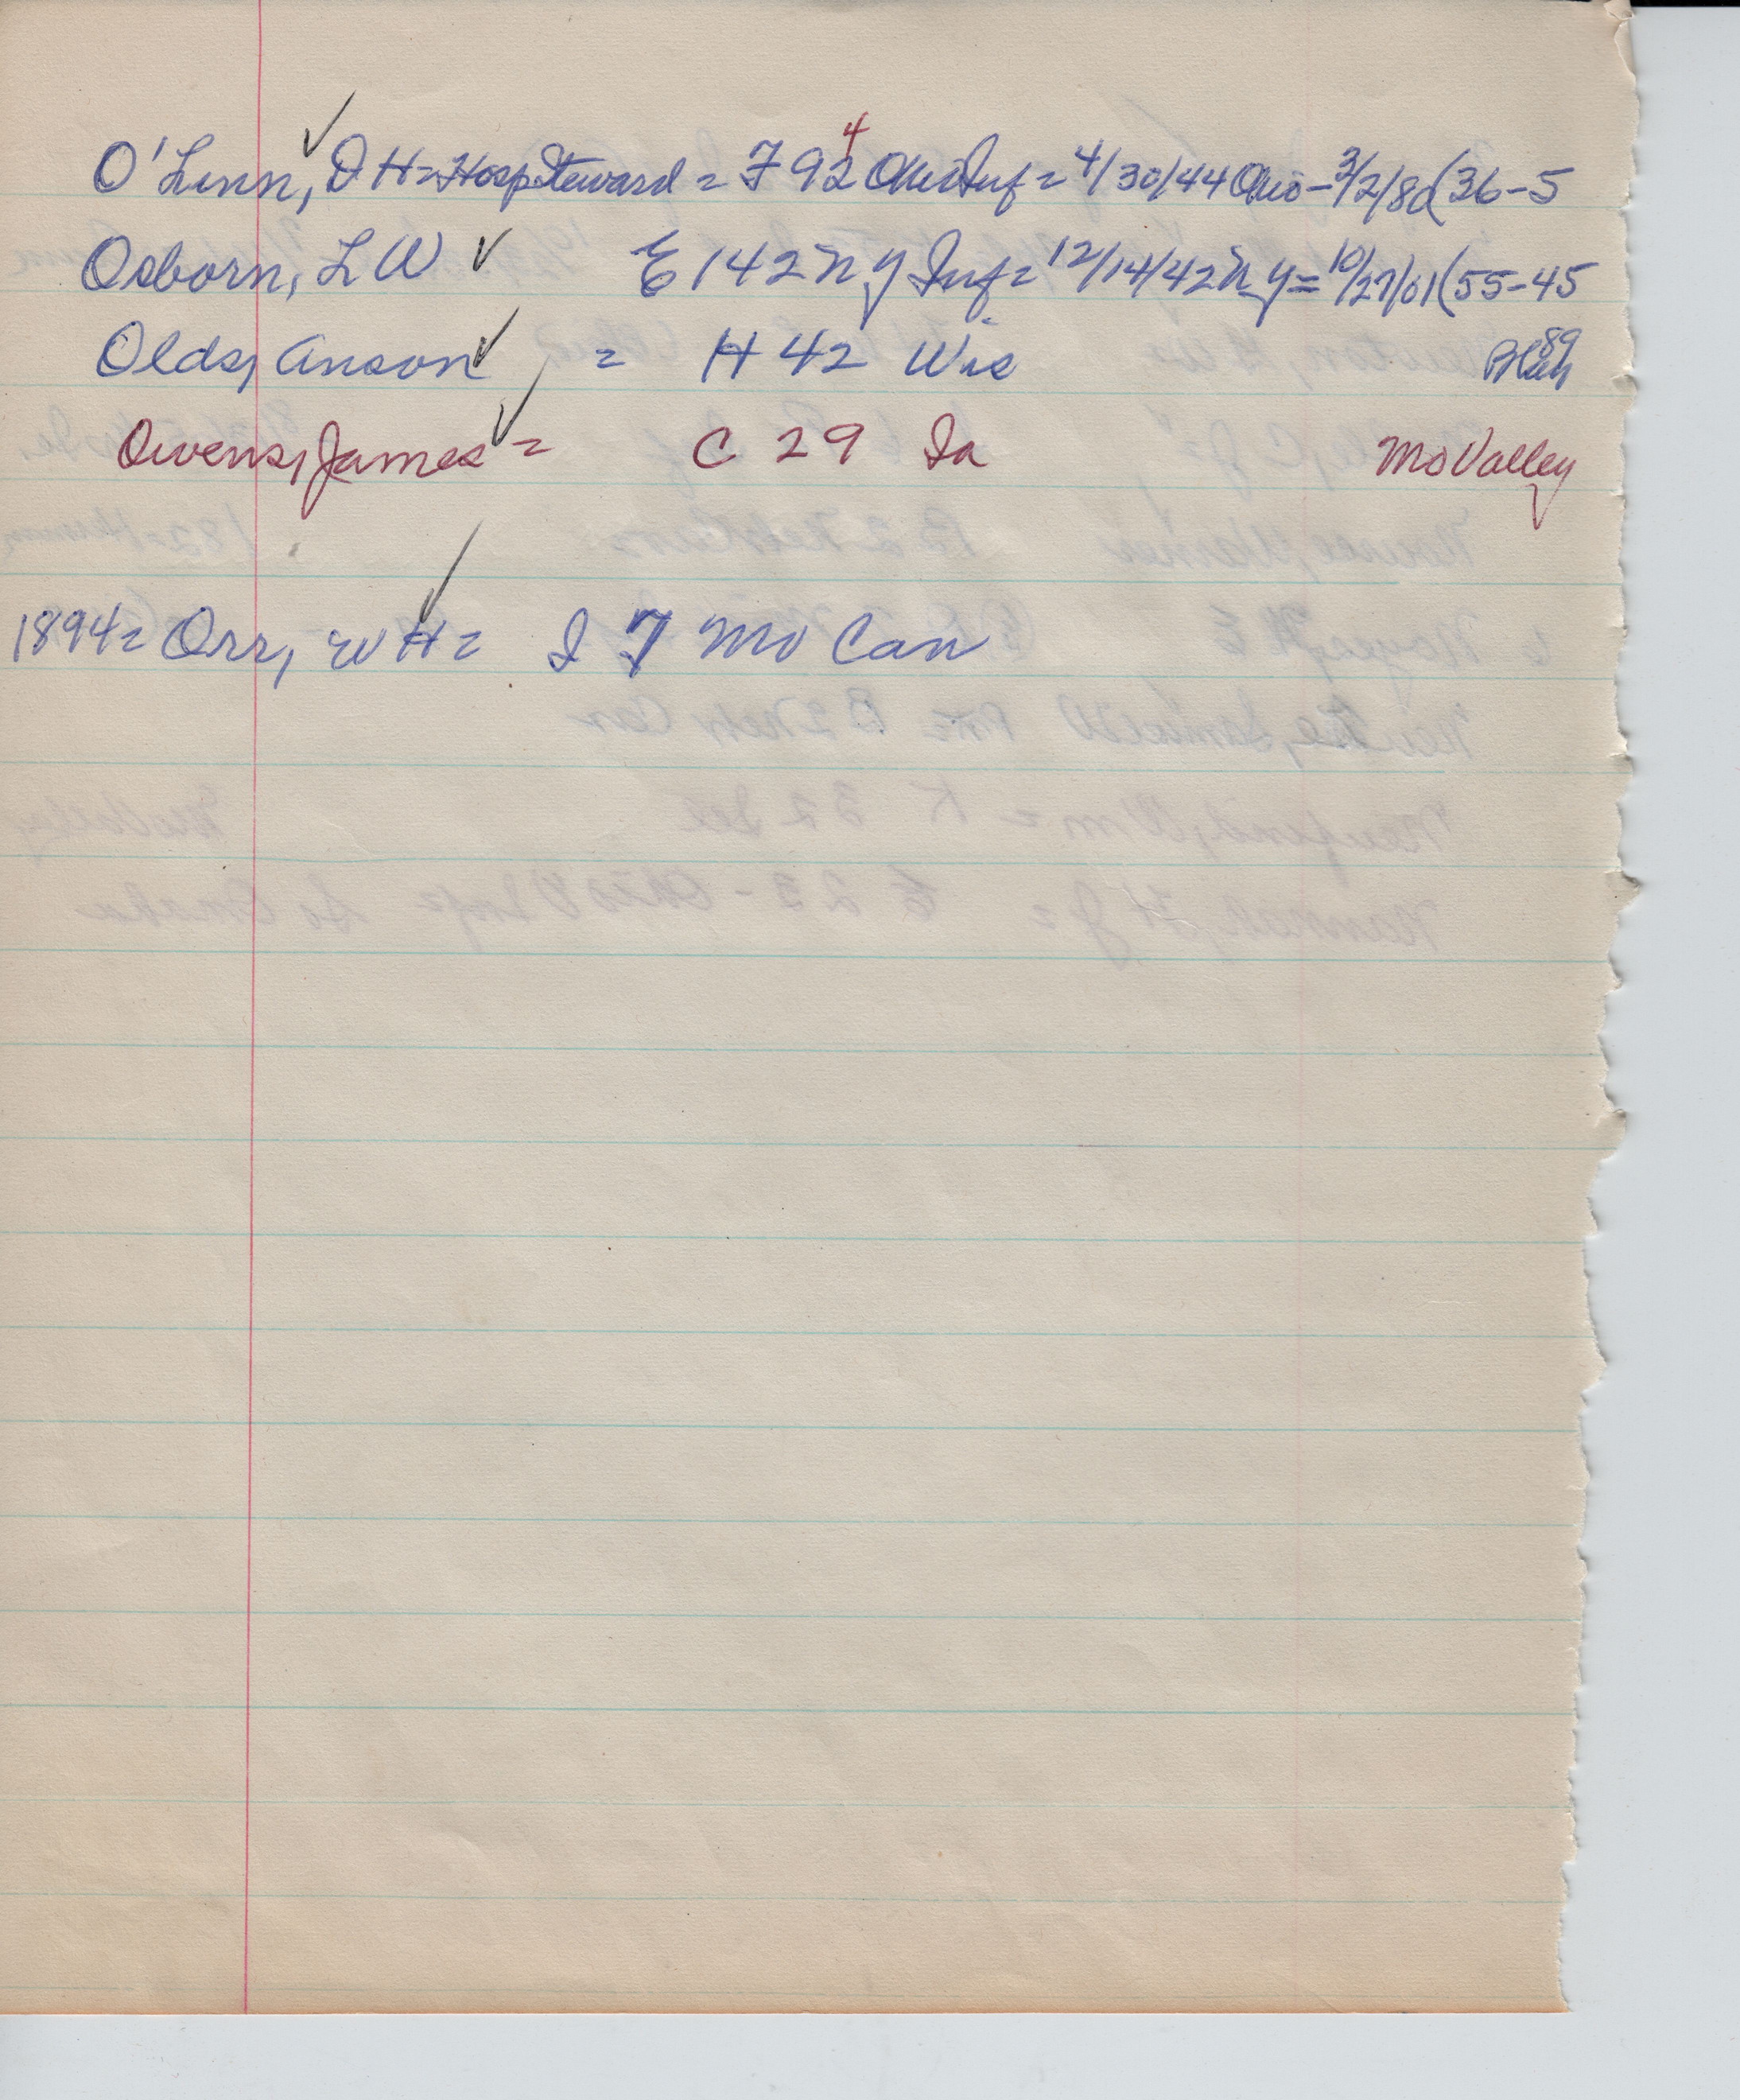 O'Linn, D H = Hosp. Steward = F 92 4 Ohio Inf = 4/30/44 Ohio - 3/2/80 (36-5
Osborn, L W ✓ E 142 N Y Inf = 12/14/42 N Y = 10/27/61 (55-45
Olds, Anson ✓ = H 42 Wis 89
Owens, James ✓ = C 29 Ia Mo Valley
1894 = Orr, W H = I 7 Mo Cav